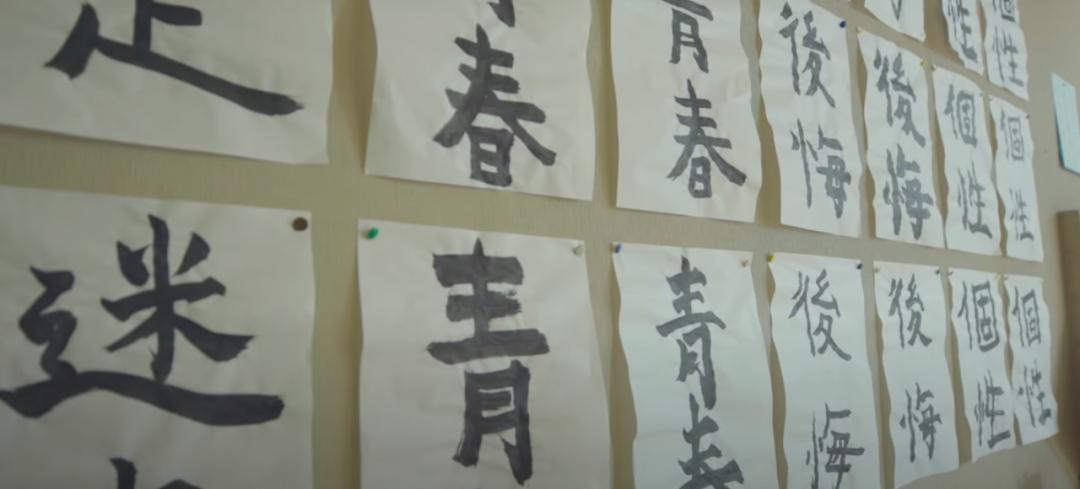 春
青春
後悔
後悔
個性
個性
性
個性
迷
青
青春
後悔
後悔
個性
個性